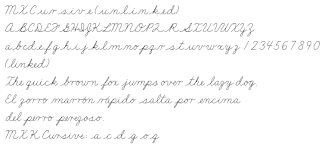 MXCursive(unlinked)
ABCDEFGHIJKLMNOPQRSTUVWXYZ
abcdefghijklmnopqrstuvwxyz1234567890
(linked)
The quick brown fox jumps over the lazy dog.
El zorro marrón rápido salta por encima
del perro perezoso.
MXKCursive: a c d g o q